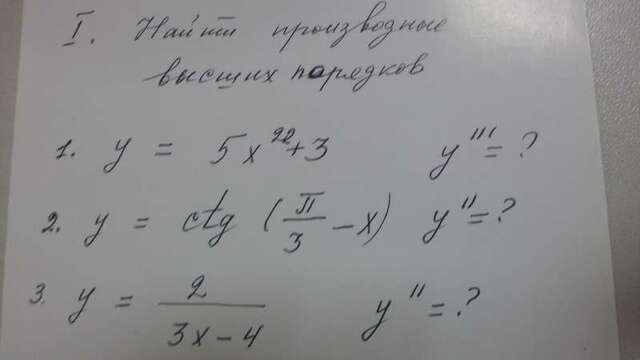 I. Найти производные
высших порядков
1. y = 5x²²+3 y''' = ?
2. y = ctg (π/3 - x) y'' = ?
3. y = 2/(3x-4) y'' = ?